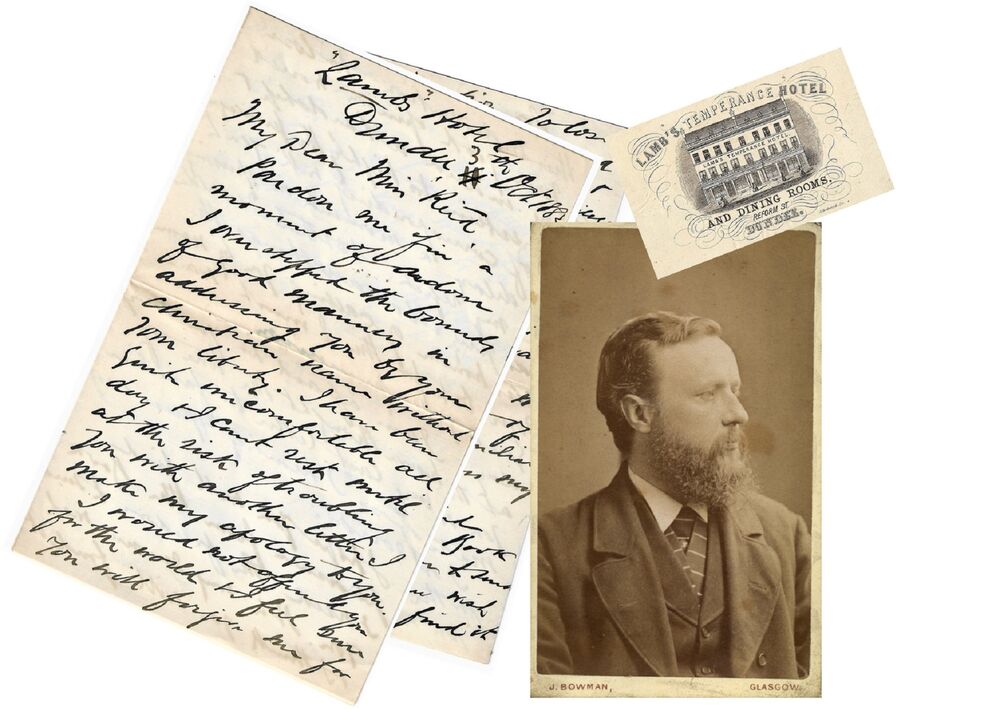 "Lambs" Hotel
Dundee, 3th Oct 188
My Dear Miss Reid
Pardon me if in a
moment of ardour
I overstepped the bounds
of good manners in
addressing you by your
Christian name without
your liberty. I have been
quite uncomfortable all
day & I cant rest until
at the risk of troubling
you with another letter I
make my apology to you.
I would not offend you
for the world & feel sure
you will forgive me for
Book
wish
find it
LAMB'S TEMPERANCE HOTEL
LAMB'S TEMPERANCE HOTEL
AND DINING ROOMS,
REFORM ST.
DUNDEE.
J. BOWMAN, GLASGOW.